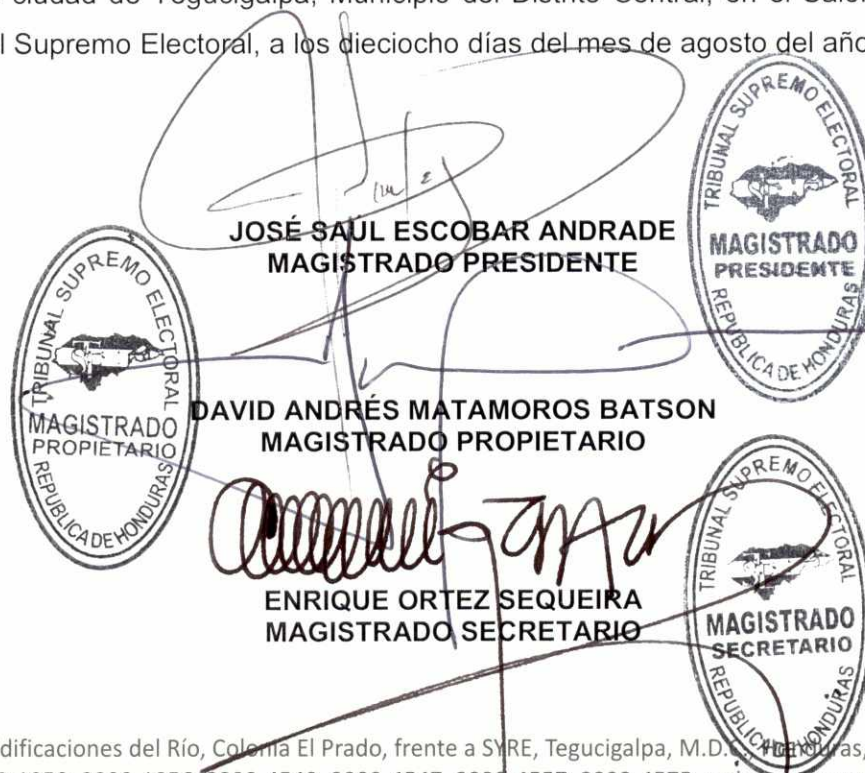 ciudad de Tegucigalpa, Municipio del Distrito Central, en el
l Supremo Electoral, a los dieciocho días del mes de agosto del año
JOSÉ SAÚL ESCOBAR ANDRADE
MAGISTRADO PRESIDENTE
TRIBUNAL SUPREMO ELECTORAL
MAGISTRADO
PRESIDENTE
REPUBLICA DE HONDURAS
TRIBUNAL SUPREMO ELECTORAL
MAGISTRADO
PROPIETARIO
REPUBLICA DE HONDURAS
DAVID ANDRÉS MATAMOROS BATSON
MAGISTRADO PROPIETARIO
ENRIQUE ORTEZ SEQUEIRA
MAGISTRADO SECRETARIO
TRIBUNAL SUPREMO ELECTORAL
MAGISTRADO
SECRETARIO
REPUBLICA DE HONDURAS
dificaciones del Río, Colonia El Prado, frente a SYRE, Tegucigalpa, M.D.C., Honduras,